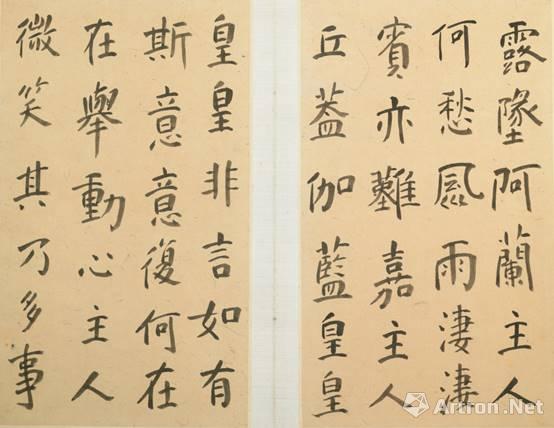 露墜阿蘭主人
何愁風雨淒淒
賓亦難嘉主人
丘蓋伽藍皇皇
皇皇非言如有
斯意意復何在
在舉動心主人
微笑其乃多事
Artron.Net